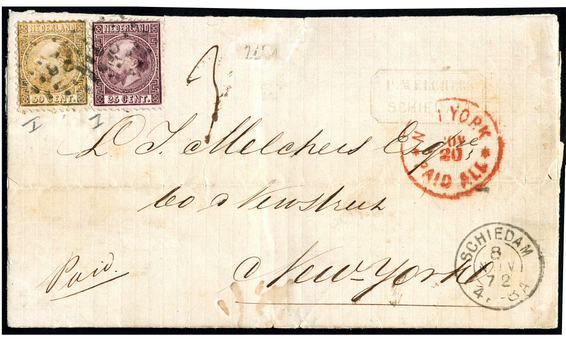 NEDERLAND
50 CENT.
NEDERLAND
25 CENT.
I
I
3
P. MELCHERS
SCHIEDAM
NEW YORK
NOV
20
PAID ALL
L. J. Melchers Esqre
60 Newstreet
Paid.
New-York
SCHIEDAM
8
NOV
72